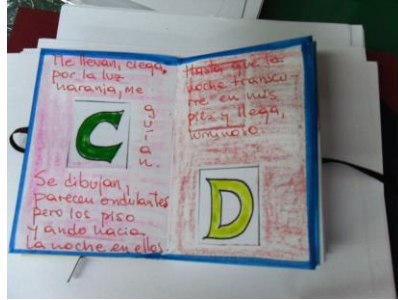 Me llevan, ciega,
por la luz
naranja, me
guían.
C
Se dibujan,
parecen ondulantes
pero los piso
y ando hacia
la noche en ellos
Hasta que la
noche transcu-
rre en mis
pies y llega,
luminoso
D